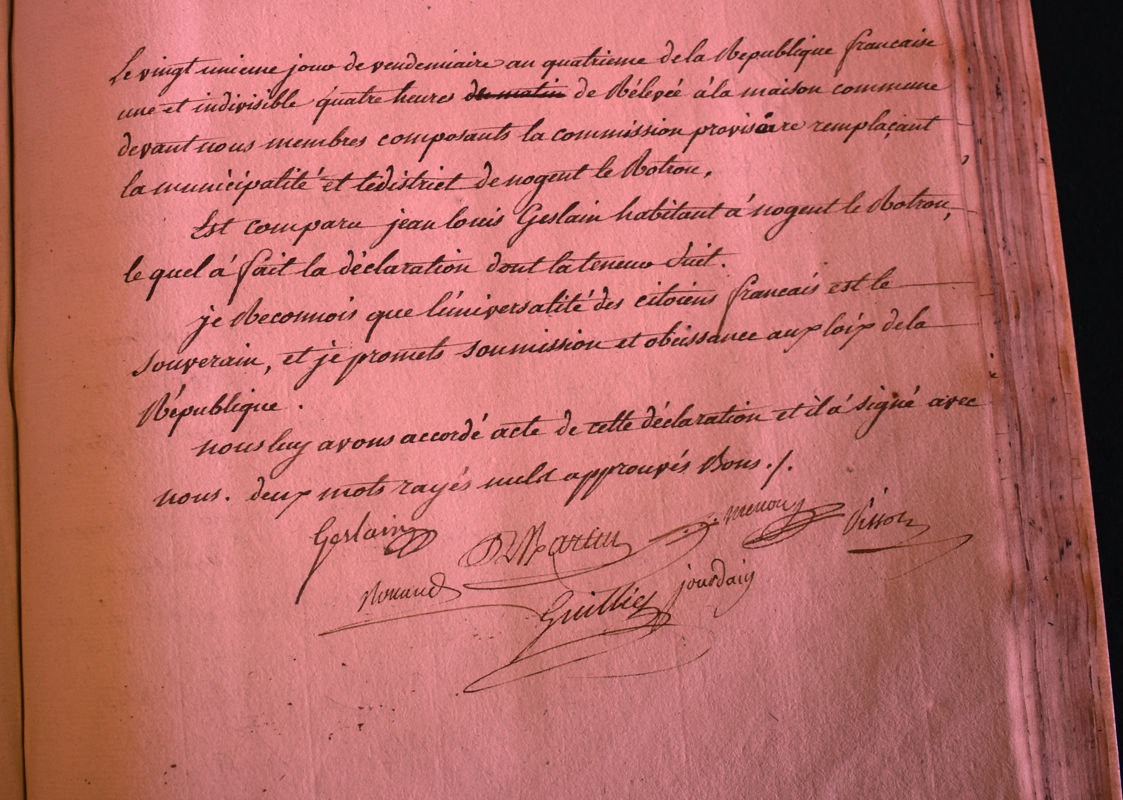 Le vingt unieme jour de vendemiaire an quatrieme de la Republique francaise
une et indivisible quatre heures de matin de Rélevée à la maison commune
devant nous membres composants la commission provisoire remplaçant
la municipalité et le district de nogent le Rotron,
Est comparu jean louis Geslain habitant à nogent le Rotrou,
le quel à fait la déclaration dont la teneur suit.
je Reconnois que l'universalité des citoiens francais est le
souverain, et je promets soumission et obeissance aux loix de la
République.
nous luy avons accordé acte de cette déclaration et il à signé avec
nous. deux mots rayés nuls approuvés Bons./.
Geslain Martin
Guillier jourdain